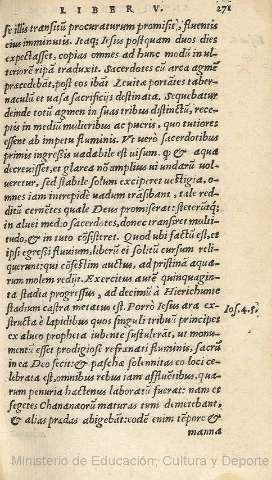 LIBER V. 271
se illis transitũ procuraturum promisit, fluentis
eius imminutis. Itaq; Iesus postquam duos dies
expectasset, copias omnes ad hunc modũ in ul-
teriorẽ ripã traduxit. Sacerdotes cũ arca agmẽ
præcedebãt, post eos ibãt Leuitæ portãtes taber-
naculũ et uasa sacrificijs destinata. Sequebatur
deinde totũ agmen in suas tribus distinctũ, rece-
ptis in mediũ mulieribus ac pueris, quo tutiores
essent ab impetu fluminis. Vt uerò sacerdotibus
primis ingressis uadabile est uisum, q & aqua
decreuisset, et glarea nõ amplius ui undarũ uol-
ueretur, sed stabile solum exciperet uestigia, o-
mnes iam intrepidè uadum trãsibant, tale red-
ditũ cernẽtes quale Deus promiserat: steterũtq;
in alueo medio sacerdotes, donec transiret multi-
tudo, & in tuto cõsisteret. Quod ubi factũ est, et
ipsi egressi fluuium, liberũ ei solitũ cursum reli-
querunt: qui cõfestim auctus, ad pristinã aqua-
rum molem redijt. Exercitus autẽ quinquagin-
ta stadia progressus, ad decimũ à Hierichunte
stadium castra metatus est. Porrò Iesus ara ex-
structa è lapidibus quos singuli tribuũ principes
ex alueo propheta iubente sustulerãt, ut monu-
mentũ esset prodigiose refrænati fluminis, sacrũ
in ea Deo fecit: & paschæ solennitas eo loci ce-
lebrata est, omnibus rebus iam affluẽtibus, qua-
rum penuria hactenus laboratũ fuerat: nam et
segetes Chananæorũ maturas tum demetebant,
& alias prædas abigebãt: eodẽ enim tẽpore &
manna
Ios. 4. 5.
Ministerio de Educación, Cultura y Deporte